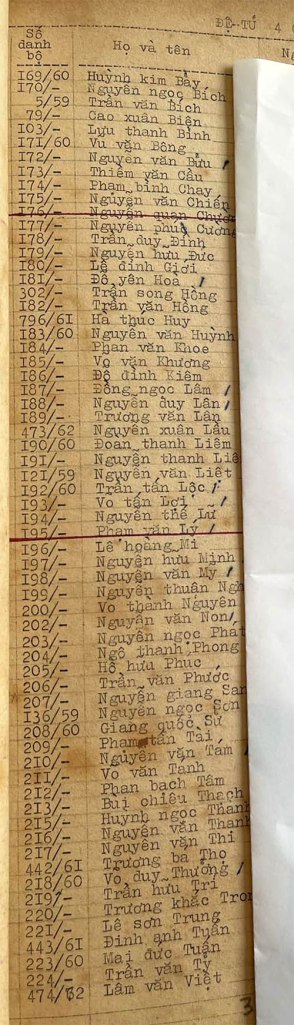 ĐỆ-TỨ 4
Số danh bộ Họ và tên
I69/60 Huỳnh kim Bảy
I70/- Nguyễn ngọc Bích
5/59 Trần văn Bích
79/- Cao xuân Biên
I03/- Lưu thanh Bình
I7I/60 Vu văn Bông
I72/- Nguyễn văn Bửu
I73/- Thiềm văn Cầu
I74/- Phạm bình Chay
I75/- Nguyễn văn Chiến
I76/- Nguyễn quan Chươn
I77/- Nguyễn phuc Cương
I78/- Trần duy Định
I79/- Nguyễn hưu Đưc
I80/- Lê đình Giơi
I8I/- Đô yên Hoa
302/- Trần song Hồng
I82/- Trần văn Hồng
796/6I Ha thuc Huy
I83/60 Nguyễn văn Huỳnh
I84/- Phan văn Khoe
I85/- Vo văn Khương
I86/- Đô đình Kiêm
I87/- Đồng ngoc Lâm
I88/- Nguyễn duy Lân
I89/- Trương văn Lân
473/62 Nguyễn xuân Lâu
I90/60 Đoan thanh Liêm
I9I/- Nguyễn thanh Liê
I2I/59 Nguyễn văn Liêt
I92/60 Trần tấn Lôc
I93/- Vo tấn Lơi
I94/- Nguyễn thế Lư
I95/- Pham văn Ly
I96/- Lê hoàng Mi
I97/- Nguyễn hưu Minh
I98/- Nguyễn văn My
I99/- Nguyễn thuân Ngh
200/- Vo thanh Nguyên
202/- Nguyễn văn Non
203/- Nguyễn ngoc Phat
204/- Ngô thanh Phong
205/- Hồ hưu Phuc
206/- Trần văn Phươc
207/- Nguyễn giang San
I36/59 Nguyễn ngoc Sơn
208/60 Giang quốc Sư
209/- Pham tấn Tai
2I0/- Nguyễn văn Tam
2II/- Vo văn Tanh
2I2/- Phan bach Tâm
2I3/- Bui chiêu Thach
2I5/- Huynh ngoc Thanh
2I6/- Nguyễn văn Thanh
2I7/- Nguyễn văn Thi
442/6I Trương ba Tho
2I8/60 Vo duy Thương
2I9/- Trần hưu Tri
220/- Trương khắc Tron
22I/- Lê sơn Trung
443/6I Đinh anh Tuấn
223/60 Mai đưc Tuấn
224/- Trần văn Ty
474/62 Lâm văn Viêt
3